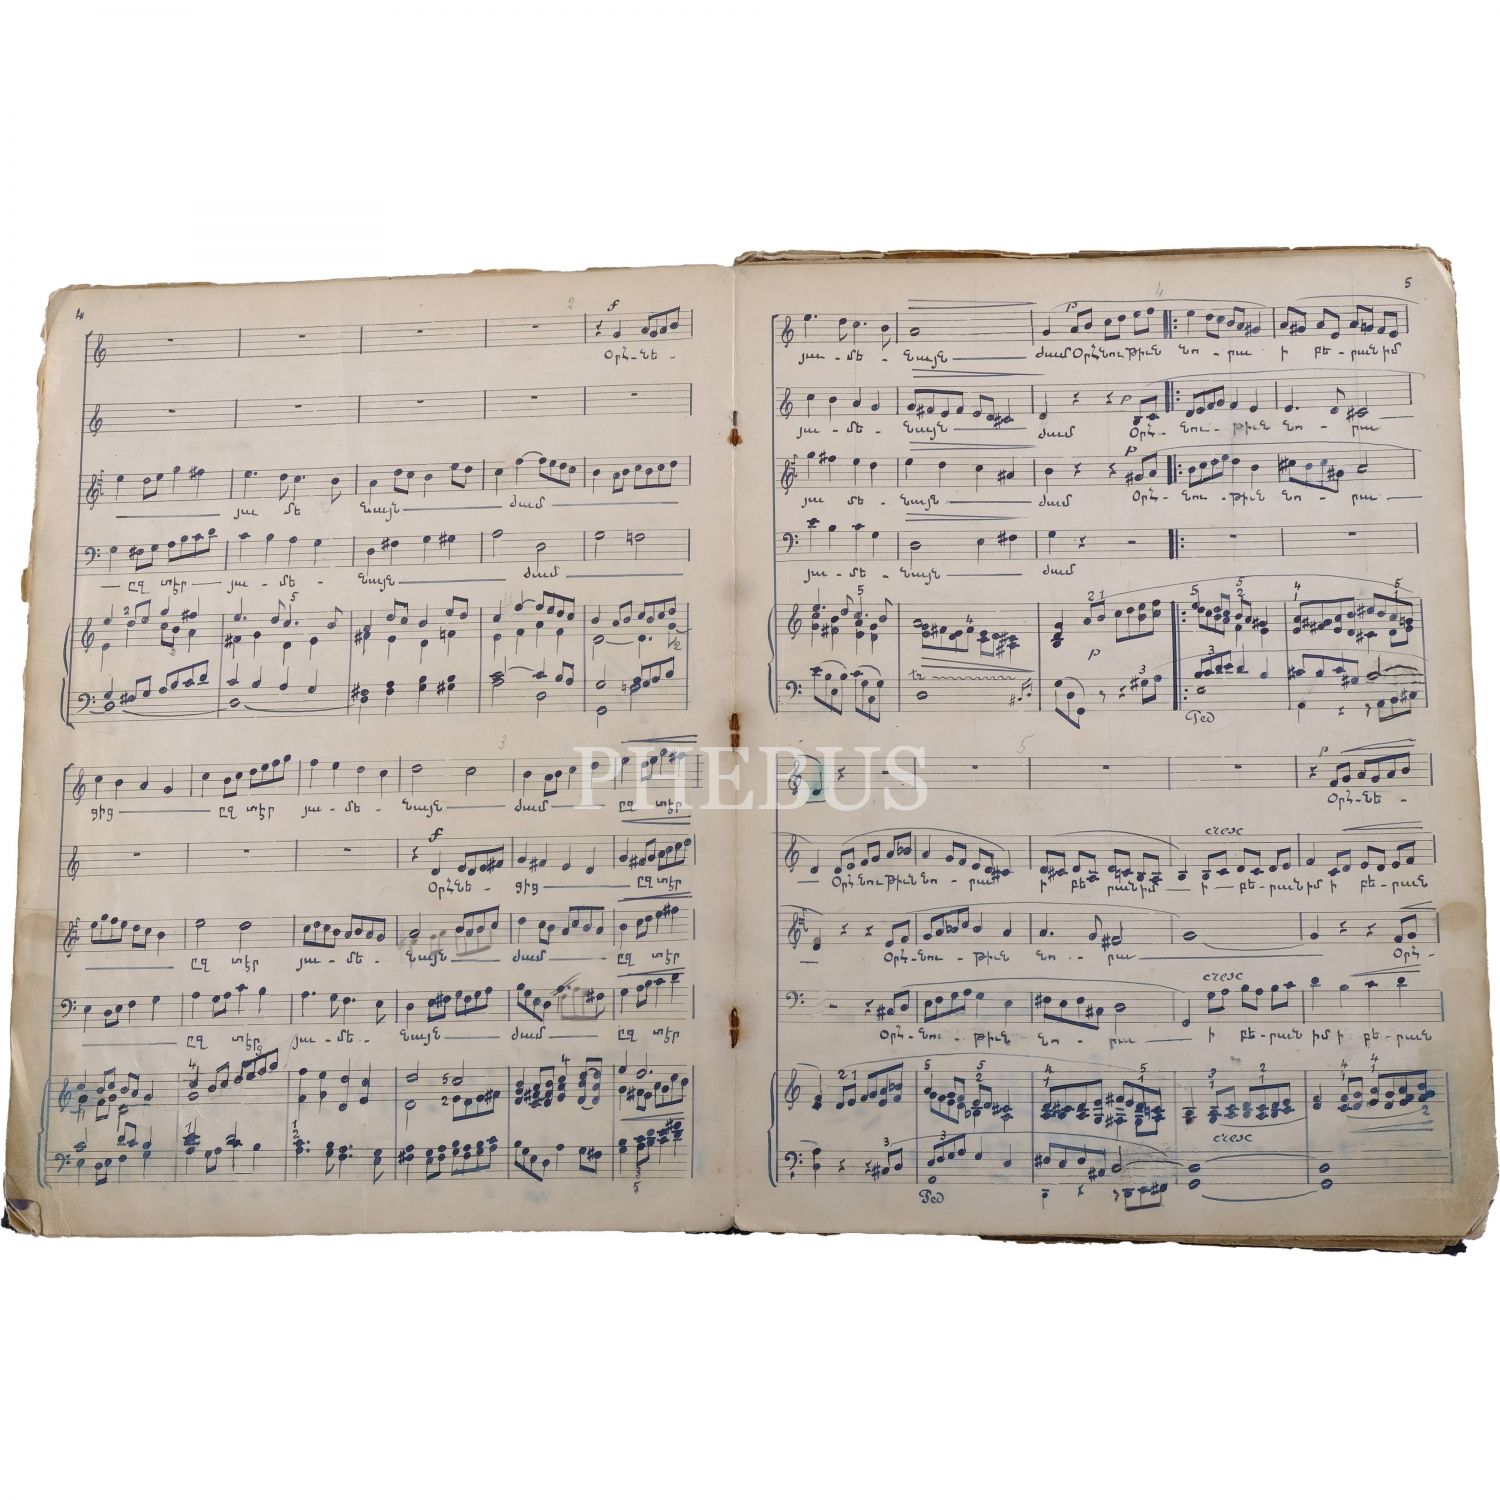 4
2
f
Օրհ-նե-
յա մե նայն ժամ
ըզ տէր յա- մե- նայն ժամ
2 5
3
ցից ըզ տէր յա- մե- նայն ժամ ըզ տէր
f
Օրհնե- ցից ըզ տէր
ըզ տէր յա- մե- նայն ժամ ըզ տէր
ըզ տէր յա- մե- նայն ժամ ըզ տէր
PHEBUS
5
4
p
յա- մե- նայն ժամ Օրհնու թիւն նո- րա ի բե- րանիմ
p
յա- մե- նայն ժամ Օրհ- նու- թիւն նո- րա
p
յա մե- նայն ժամ Օրհ- նու- թիւն նո- րա
յա- մե- նայն ժամ
p
tr
Ped
5
p
Օրհ- նե-
cresc
Օրհ-նու թիւն նո- րա ի բե րանիմ ի բե-րանիմ ի բե-րան
Օրհ-նու- թիւն նո- րա Օրհ-
cresc
Օրհ- նու- թիւն նո- րա ի բե-րան իմ ի բե-րան
cresc
Ped